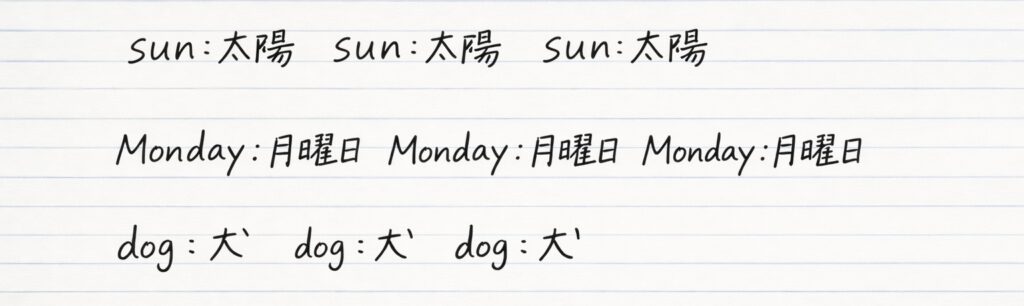 sun:太陽 sun:太陽 sun:太陽
Monday:月曜日 Monday:月曜日 Monday:月曜日
dog:犬 dog:犬 dog:犬